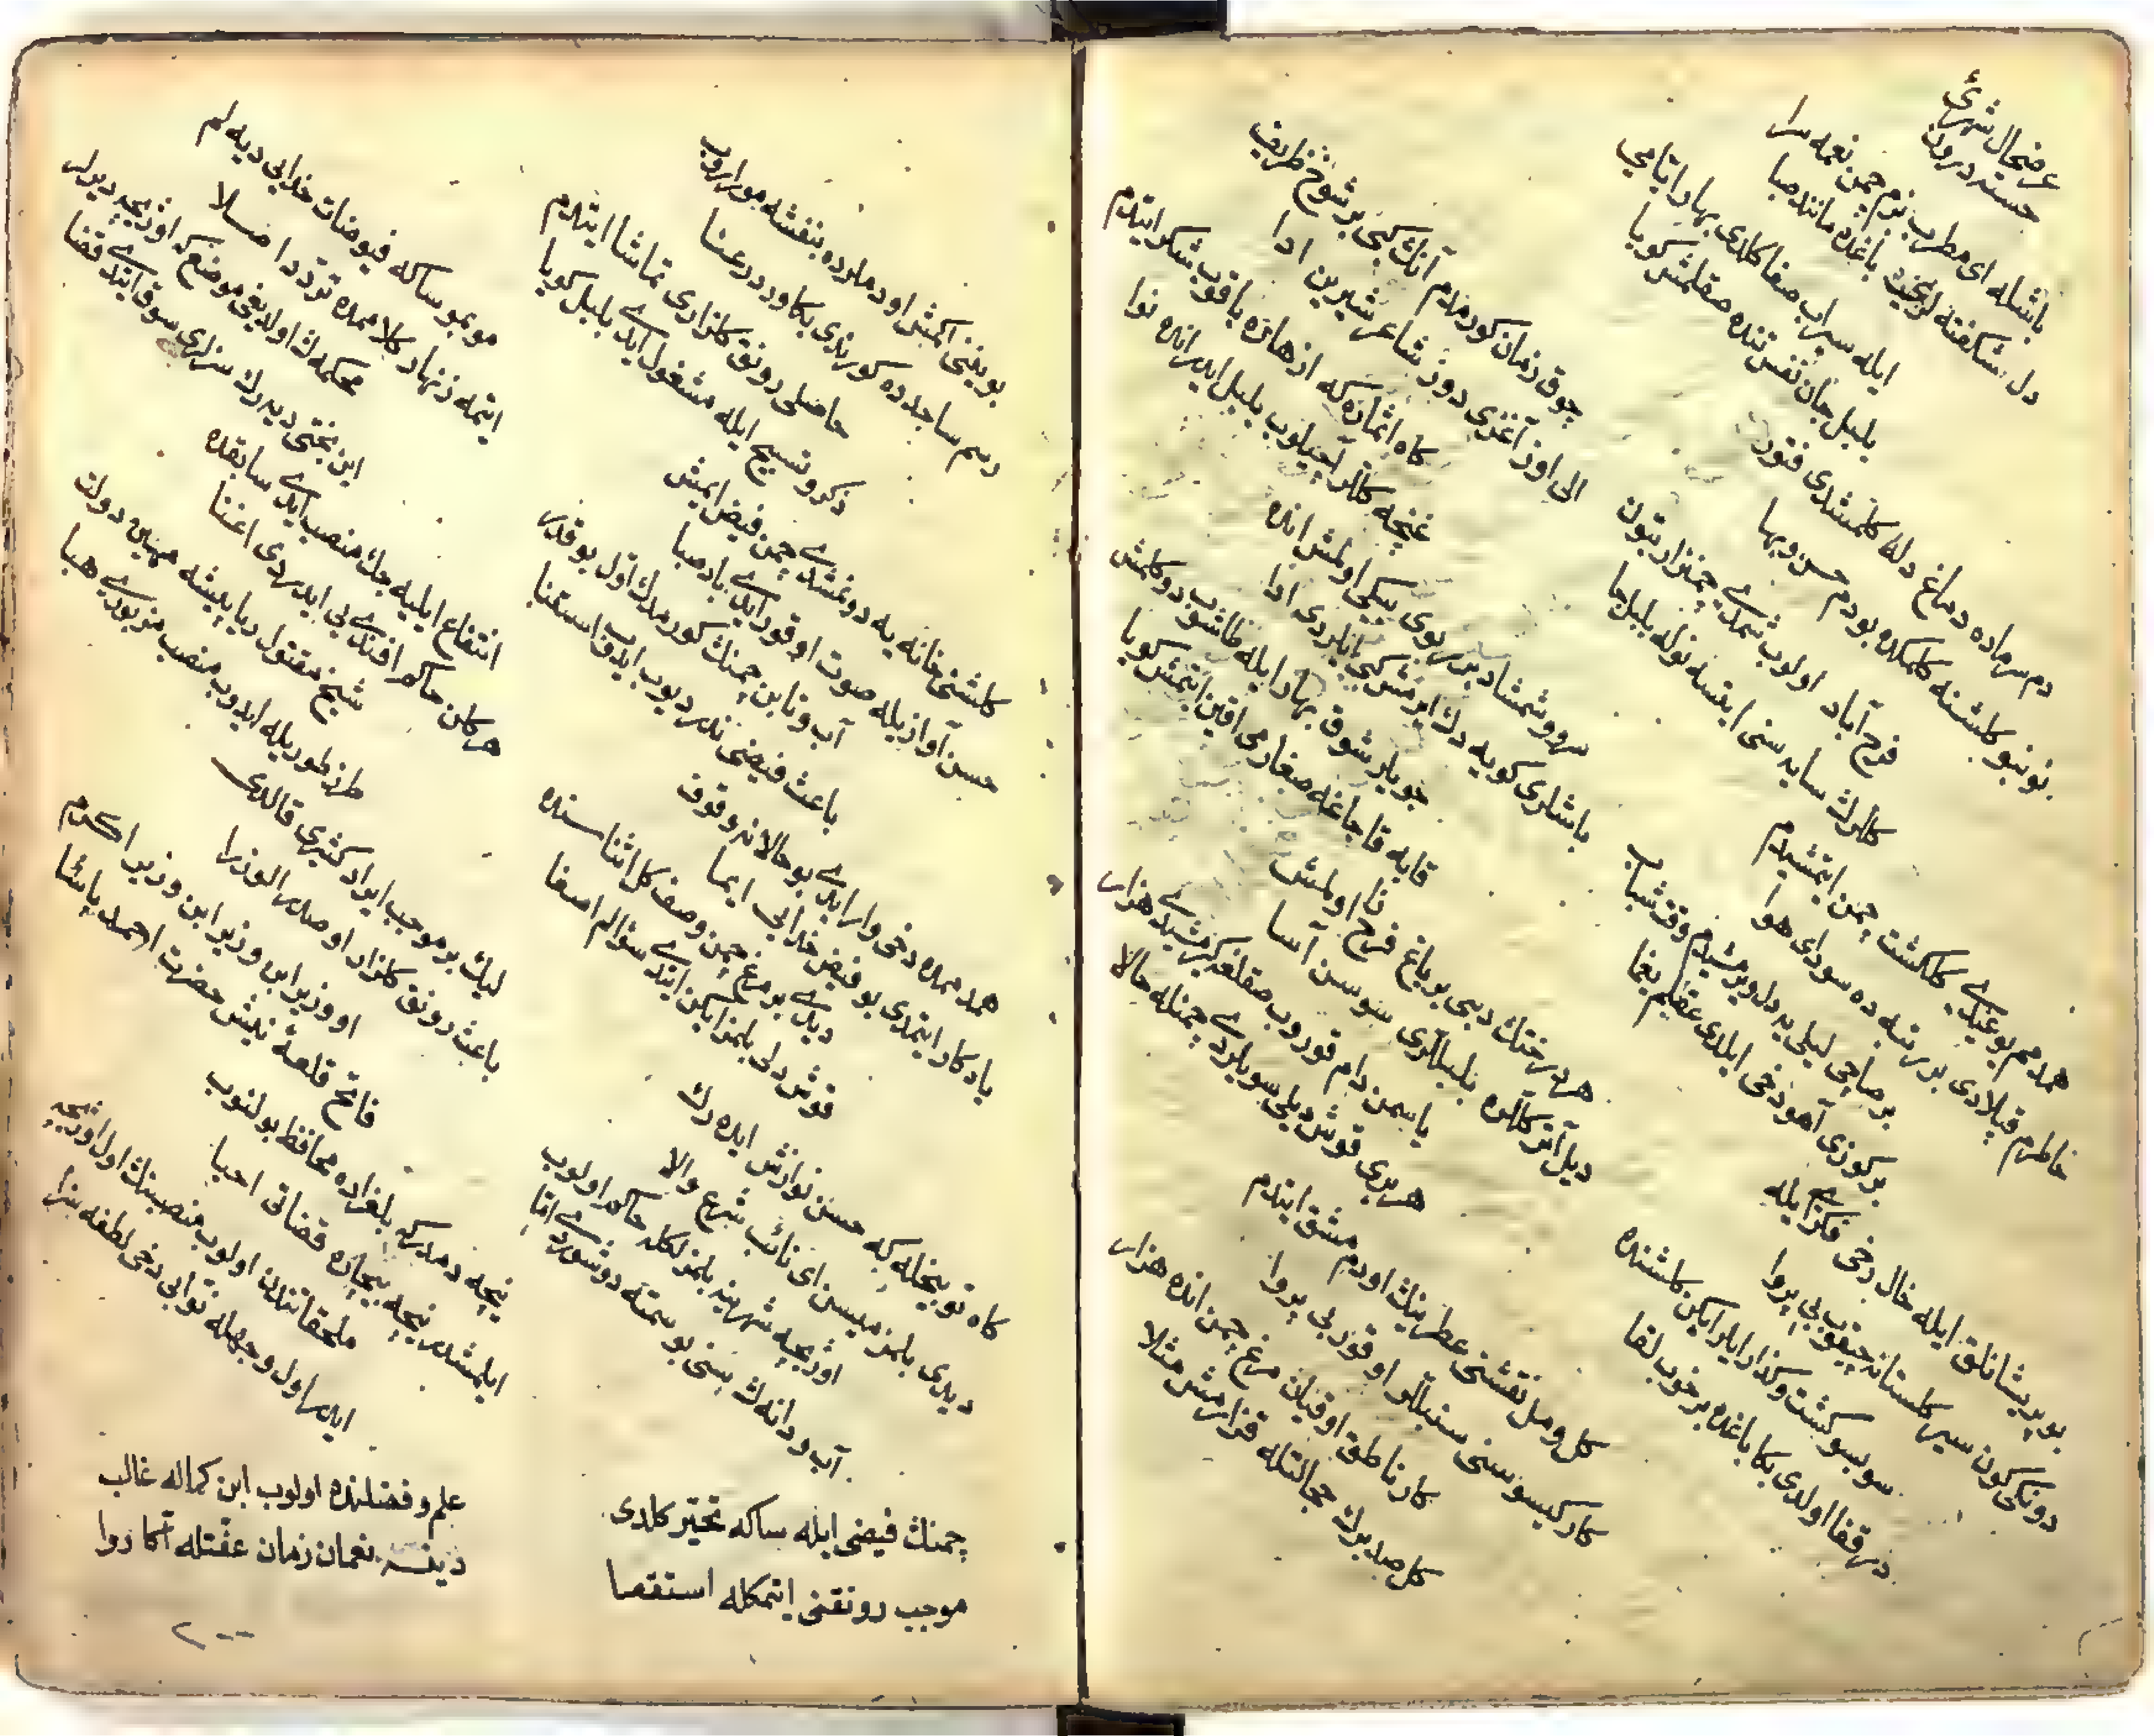 عرضحال شهری
خسته درون
باشله ای مطرب بزم چمن نغمه سرا
دل شکفته لریجیت باغده مانند صبا
ایله سیراب صفا کلدی بهار ایامی
بلبل جان قفس تنده صقلمش کویا
دم سرماده دماغ دله کلمشدی فتور
نوبنو کلشنه کلمکده بودم حسن وبها
فرح آباد اولوب شمدی چمنزار بتون
کللرك سایه سنی ایتسه نوله بلبل جا
همدمم بوغیدی کلکشت چمن ایتمشیدم
خاطرم قپلادی برتبه ده سودای هوا
بر صاچی لیلی یه دل ویرمشیدم وقت شباب
بر کوزی آهو دخی ایلدی عقلم یغما
بو پریشانلق ایله خال رخی فکری ایله
دونکی کون سیر کلستانه چیقوب بی پروا
سوبسو کشت و کذار ایلر ایکن کلشنده
در قفا اولدی بکا باغده بر خوب لقا
چوق زمان کورمدم آنك کبی بر شوخ ظریف
الی اوز آغزی دوز شاعر شیرین ادا
کاه اثماره که ازهاره باقوب شکر ایتدم
غنچه کللر آچیلوب بلبل ایدر انده نوا
سرو و شمشاد برر بوی بیکی اولمش انده
باشلری کویه دك ایرمش کبی بانلردی ادا
جویلر شوق بهار ایله طاشوب دوکلمش
قابه قاجاغه صغارمی اقین ایتمش کویا
هر درختك دیبی بر باغ فرح زا اولمش
دیل آتر کللره بلبللری سوسن آسا
یاسمن دام قوروب صقلغه کیرمشیدی هزار
هر بری قوش دیلی سویلردی چمنله حالا
کل و مل نقشنی عطرینك اودم مشق ایتدم
کار کیسوسنی سنبللر اوقور بی پروا
کار ناطق اوقینك مرغ چمن انده هزار
کل صد برك خجالتله قزارمش مثلا
بوینی اکمش اودملرده بنفشه مور اروب
رسم ساجدده کورندی بکا ورد رعنا
حاصلی رونق کلزاری تماشا ایتدم
ذکر و تسبیح ایله مشغول ایدی بلبل کویا
کلشنی خانه یه دونمشدی چمن فیض ایمش
حسن آواز یله صوت اوقور ایدی باد صبا
آب و تابن چمنك کورمدك اول بو قدر
باعث فیضی ندر دیوب ایدوب استفنا
همدممده دخی وار ایدی بو حالاته وقوف
یادکار ایتمدی بو فیض خدایی ایما
دیدی بر مرغ چمن وصف کل اثناسنده
قوش دلی بلمز ایکن ایتدی سؤالم اصغا
کاه توبیخله که حسن نوازش ایده رك
دیدی بلمزمیسن ای نائب شرع والا
اوزیجه شهرینه بلمزلکله حاکم اولوب
آب و دانه‌ك سنی بو سمته دوشوردی اقا
چمنك فیضی ایله ساکه تحیر کلدی
موجب رونقنی ایتمکله استقصا
موبمو ساکه فیوضات خدایی دیه لم
ایتمه زنهار کلاممده تردد اصلا
محکمه‌ك اولدیغی موضع که اوزیجه دیرلر
ابن یختی دیرلر سزلری سوق ایتدی قضا
انتفاع ایلیه جك منصب ایدی سابقده
هر کلن حاکم افندی بی ایدردی اغنا
شیخ مقتول ریا پیشه مهین دولت
طرز طوریله ایدوب منصب مزبوری هبا
لیك بر موجب ایراد کثیری قالدی
باعث رونق کلزار او صدر الوزرا
او وزیر ابن وزیر ابن وزیر اکرم
فاتح قلعهٔ نیش حضرت احمد پاشا
نیچه دملرکه بلغراده محافظ بولنوب
ایلمشدر نیچه بیچاره قضاتی احیا
ملحقاتندن اولوب منصبینك اول اوزیجه
ایلر اول وجهله نوابی دخی لطفه سزا
علم و فضلنده اولوب ابن کماله غالب
دینسه نعمان زمان عفتله آکا روا
٢٠٠